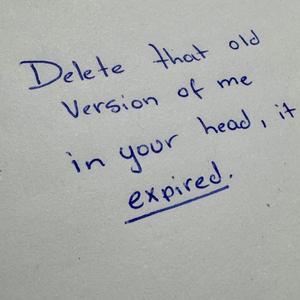 Delete that old
Version of me
in your head, it
expired.